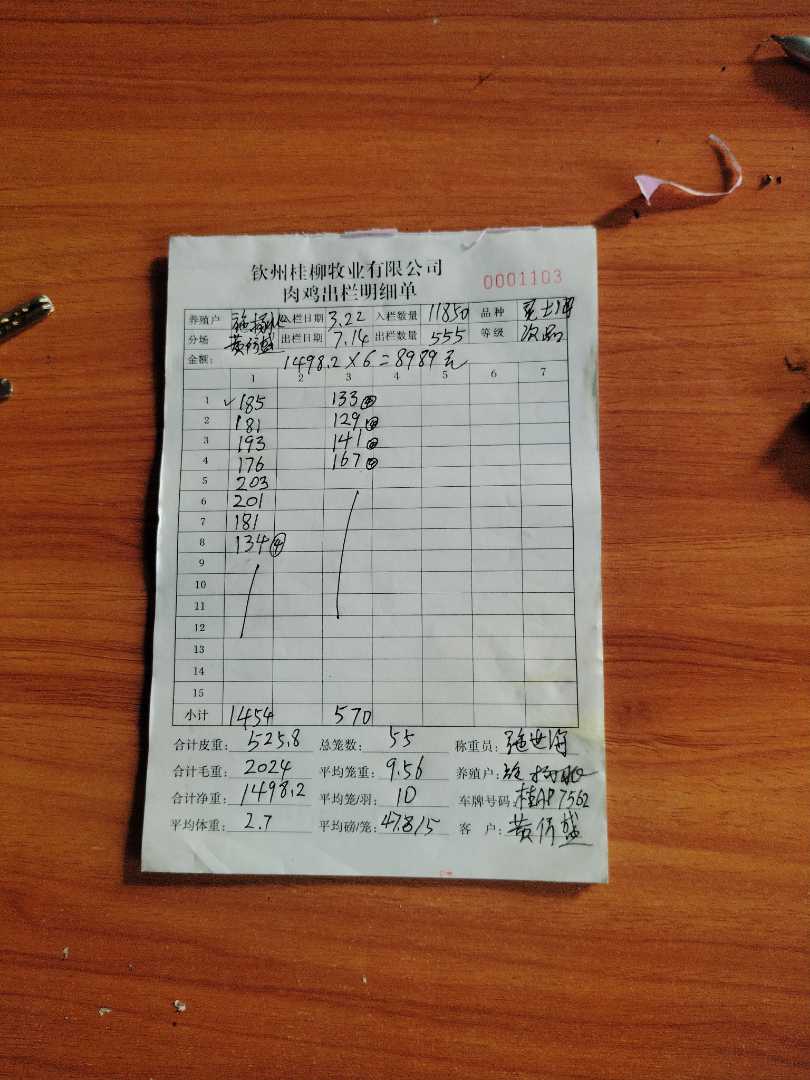 钦州桂柳牧业有限公司
肉鸡出栏明细单 0001103
养殖户 入栏日期 3.22 入栏数量 11850 品种
分场 出栏日期 7.14 出栏数量 555 等级 次品
金额: 1498.2×6=8989元
1 2 3 4 5 6 7
1 185 133
2 181 129
3 193 141
4 176 167
5 203
6 201
7 181
8 134④
9
10
11
12
13
14
15
小计 1454 570
合计皮重: 525.8 总笼数: 55 称重员:
合计毛重: 2024 平均笼重: 9.56 养殖户:
合计净重: 1498.2 平均笼/羽: 10 车牌号码: 桂AP7562
平均体重: 2.7 平均磅/笼: 478/5 客户: 黄